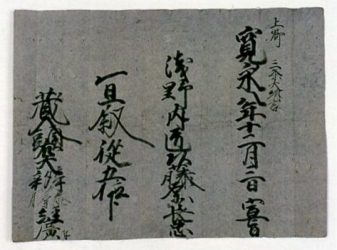 上卿 三条大納言
寛永八年十二月二日 宣旨
浅野内匠頭藤原長
宜叙從五位下
蔵人頭 藤原經廣